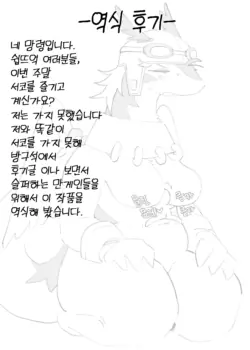 -역식 후기-
네 망령입니다.
쉽뜨억 여러분들,
이번 주말
서코를 즐기고
계신가요?
저는 가지 못했습니다
저와 똑같이
서코를 가지 못해
방구석에서
후기글 이나 보면서
슬퍼하는 만게인들을
위해서 이 작품을
역식해 봤습니다.